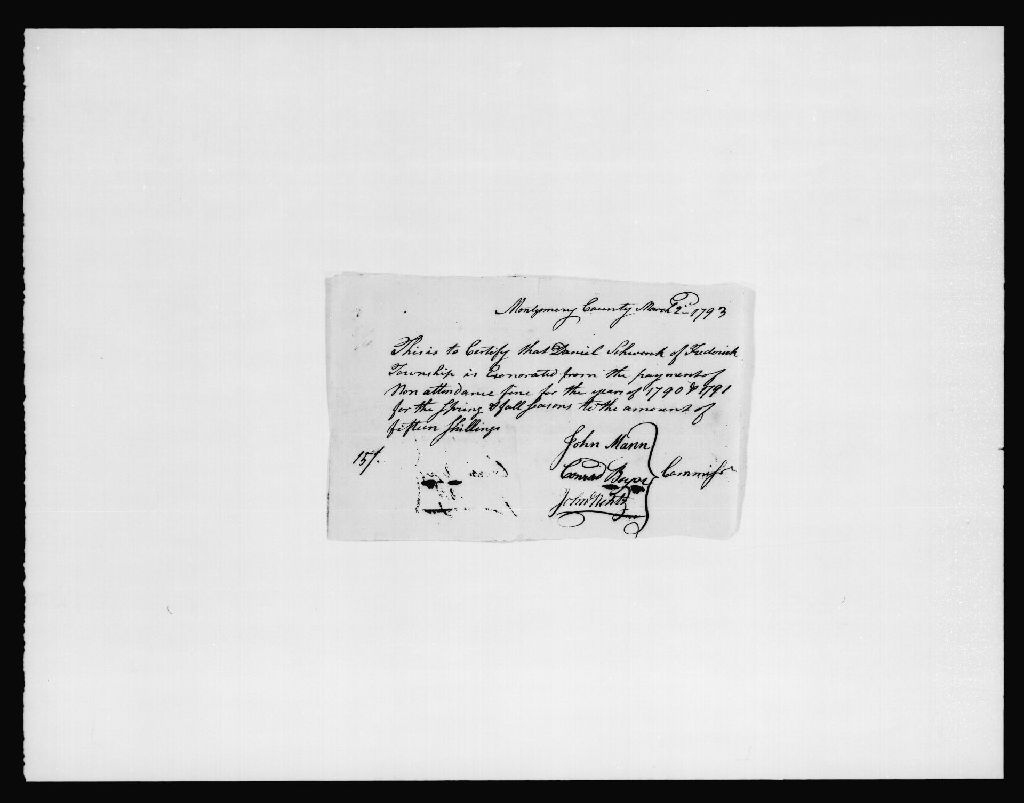 Montgomery County March 2d 1793
This is to Certify that Daniel Schwenk of Frederick
Township is Exonorated from the payment of
Non attendance fine for the years of 1790 & 1791
for the Spring & fall seasons to the amount of
fifteen Shillings
15/.
John Mann
Conrad Boyer
John
Commissrs